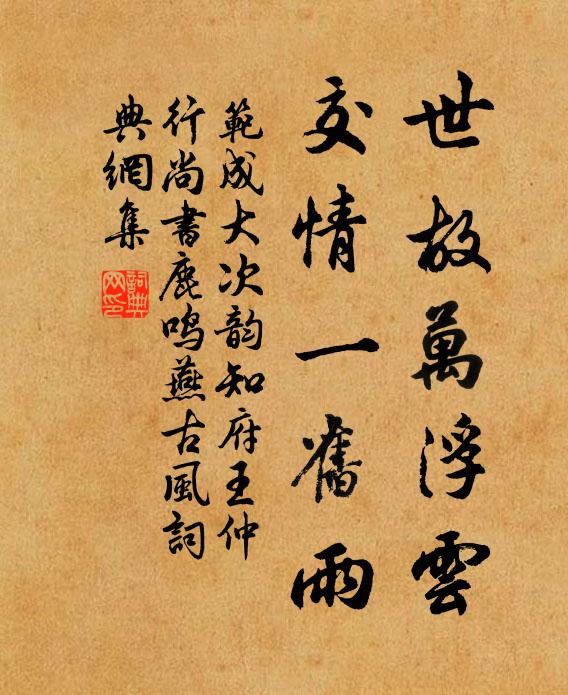 世故萬浮雲
交情一舊雨
範成大次韵知府王仲
行尚書鹿鳴燕古風詞
典網集
詞典
网印